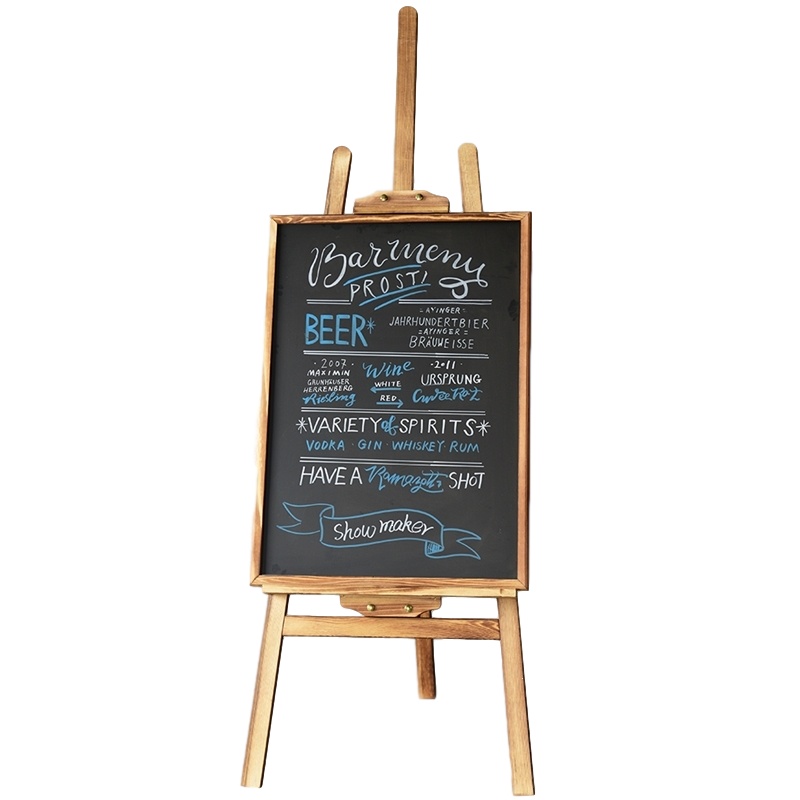 Barmenu
PROST!
BEER*
= AYINGER =
JAHRHUNDERTBIER
= AYINGER =
BRÄUWEISSE
· 2007 ·
MAXIMIN
GRÜNHÄUSER
HERRENBERG
Riesling
Wine
WHITE
RED
· 2011 ·
URSPRUNG
Cuvée Rot
*VARIETY of SPIRITS*
VODKA · GIN · WHISKEY · RUM
HAVE A Ramazotti SHOT
Show maker